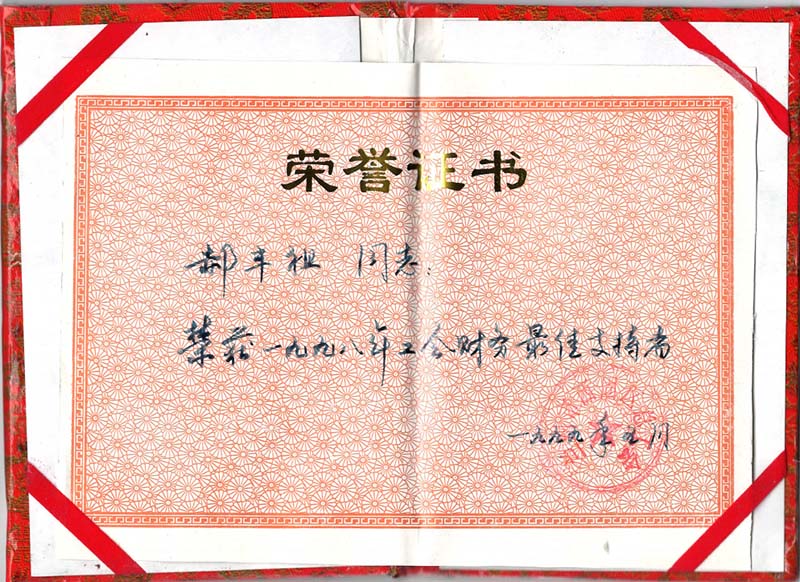 荣誉证书
郝丰祖 同志:
荣获一九九八年工会财务最佳支持者
一九九九年五月